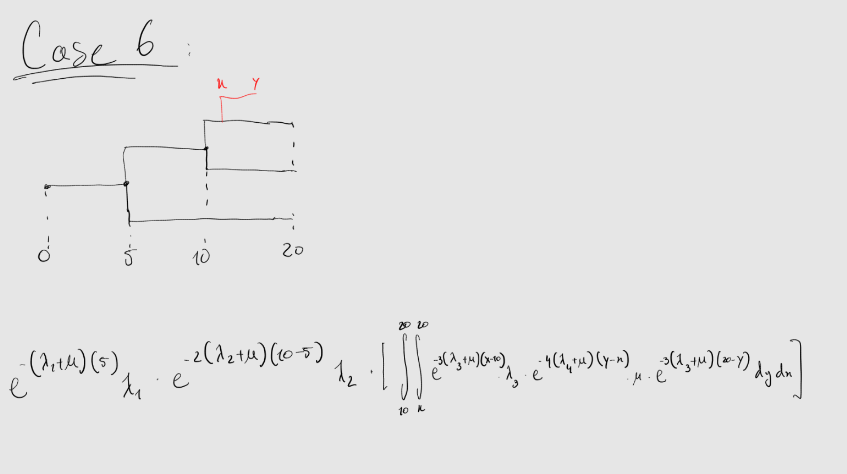 Case 6 :
x y
0 5 10 20
e^{-(λ₁+μ)(5)} λ₁ · e^{-2(λ₂+μ)(10-5)} λ₂ · [ ∫_{10}^{20} ∫_{x}^{20} e^{-3(λ₃+μ)(x-10)} · λ₃ · e^{-4(λ₄+μ)(y-x)} · μ · e^{-3(λ₃+μ)(20-y)} dy dx ]